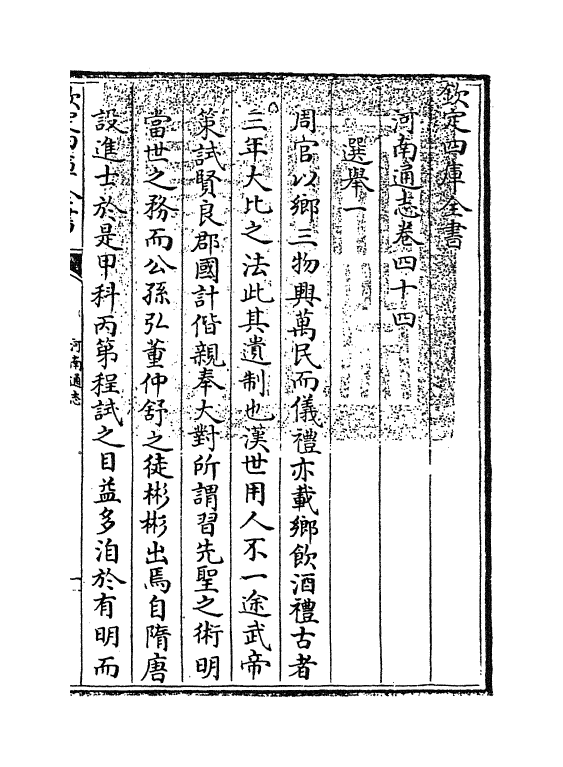 欽定四庫全書
河南通志卷四十四
選舉一
周官以鄉三物興萬民而儀禮亦載鄉飲酒禮古者
三年大比之法此其遺制也漢世用人不一途武帝
策試賢良郡國計偕親奉大對所謂習先聖之術明
當世之務而公孫弘董仲舒之徒彬彬出焉自隋唐
設進士於是甲科丙第程試之目益多洎於有明而
欽定四庫全書
河南通志
一